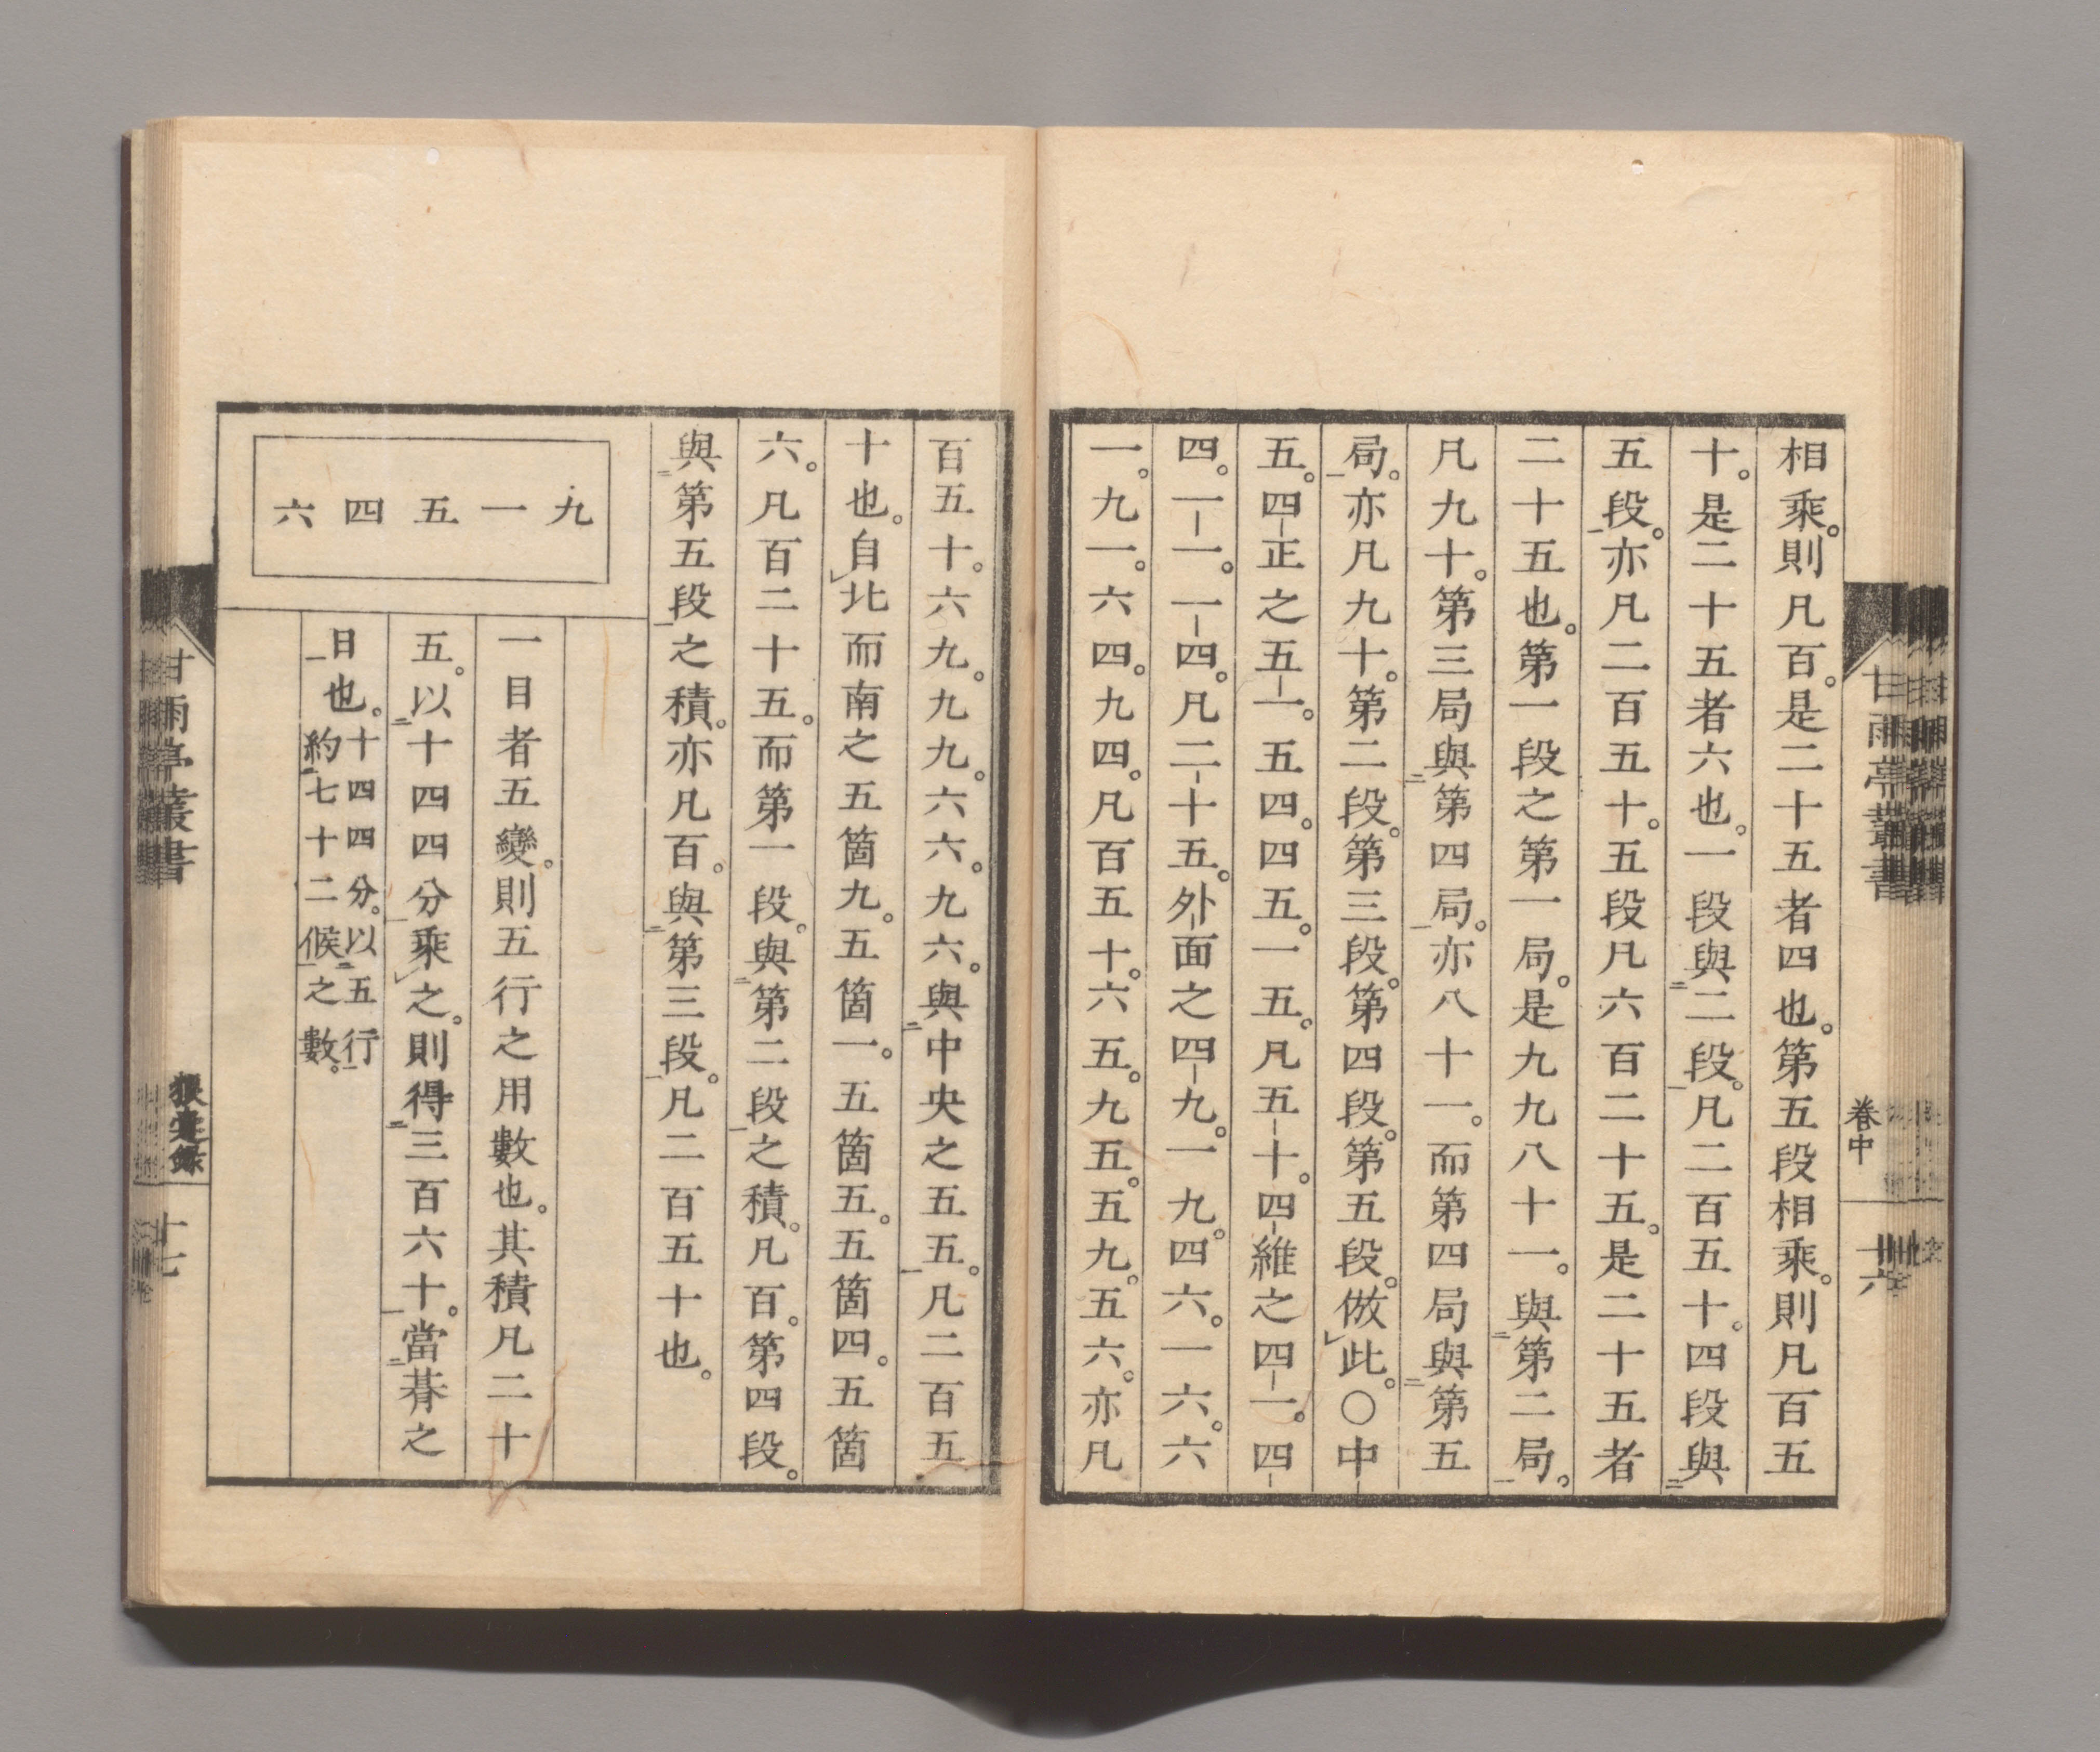 相乘。則凡百。是二十五者四也。第五段相乘。則凡百五
十。是二十五者六也。一段與二段。凡二百五十。四段與
五段。亦凡二百五十。五段凡六百二十五。是二十五者
二十五也。第一段之第一局。是九九八十一。與第二局。
凡九十。第三局與第四局。亦八十一。而第四局與第五
局。亦凡九十。第二段。第三段。第四段。第五段。倣此。○中
五。四正之五一。五四。四五。一五。凡五十。四維之四一。四
四。一一。一四。凡二十五。外面之四九。一九。四六。一六。六
一。九一。六四。九四。凡百五十。六五。九五。五九。五六。亦凡
卷中
十六
甘雨亭叢書
百五十。六九。九九。六六。九六。與中央之五五。凡二百五
十也。自北而南之五箇九。五箇一。五箇五。五箇四。五箇
六。凡百二十五。而第一段。與第二段之積。凡百。第四段。
與第五段之積。亦凡百。與第三段。凡二百五十也。
九一五四六
一目者五變。則五行之用數也。其積凡二十
五。以十四四分乘之。則得三百六十。當朞之
日也。
十四四分。以五行
約七十二候之數。
甘雨亭叢書
狼疐錄
十七